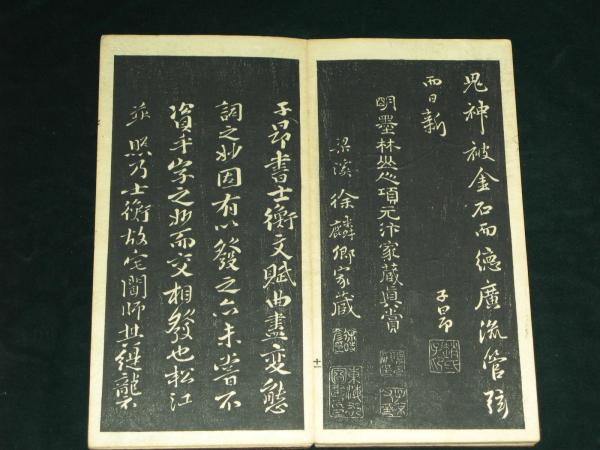 鬼神被金石而德廣流管弦
而日新
子昂
明墨林山人項元汴家藏真賞
梁溪徐麟卿家藏
十一
子昂書士衡文賦曲盡變態
詞之妙固有以發之亦未嘗不
資乎字之妙而交相發也松江
照乃士衡故宅閶師